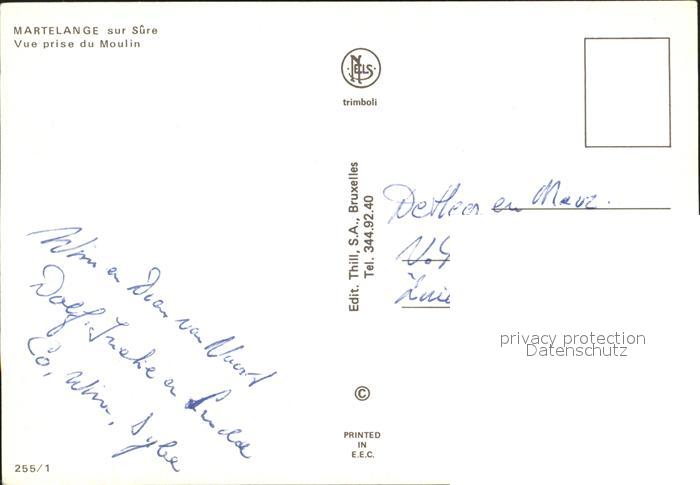 MARTELANGE sur Sûre
Vue prise du Moulin
NELS
trimboli
Edit. Thill, S.A., Bruxelles
Tel. 344.92.40
De Heer en Mevr.
Wim en Dian van
Dolf, Ineke en Linda
Co, Wim, Sybe
privacy protection
Datenschutz
©
PRINTED
IN
E.E.C.
255/1